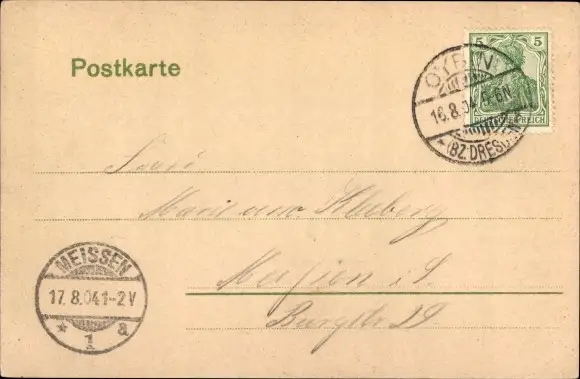 5 5
DEUTSCHES REICH
Postkarte
OYBIN
16.8.04. 6-7N
* (BZ. DRESDEN)
Marie
Meißen i. S.
Burgstr 29.
MEISSEN
17. 8.04.1-2V
* 1 a